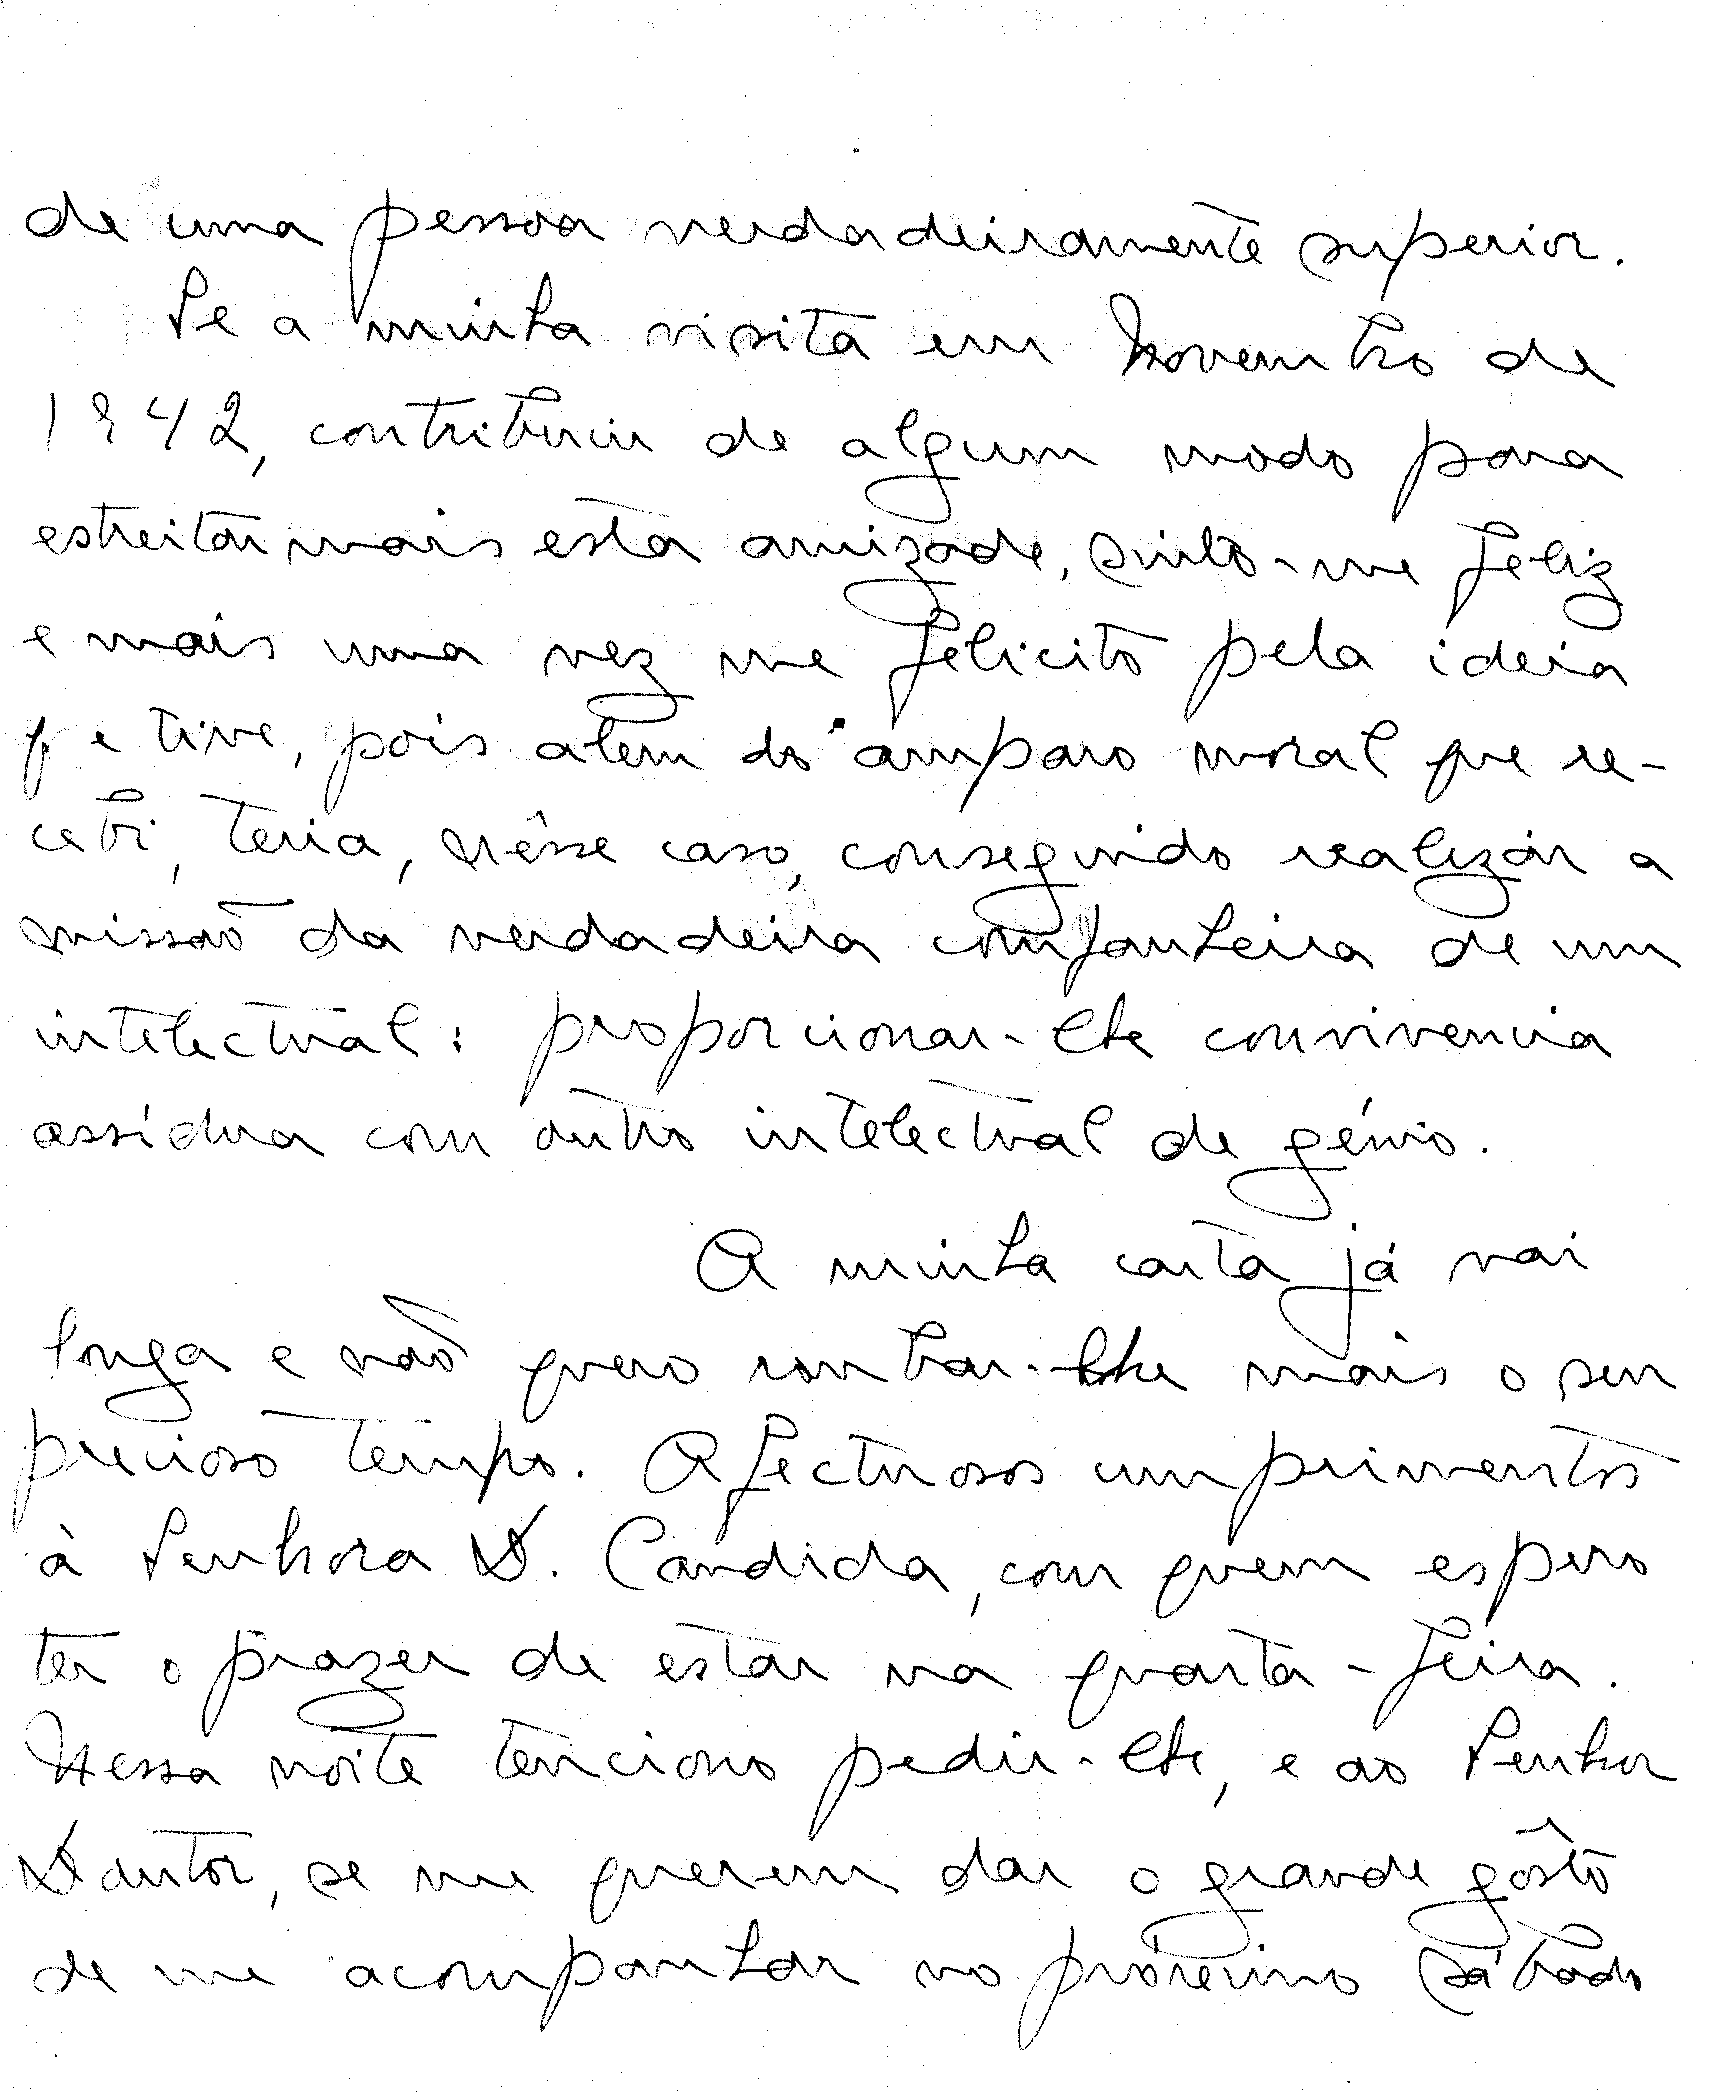 de uma pessoa verdadeiramente superior.
Se a minha visita em Novembro de
1942, contribuiu de algum modo para
estreitar mais esta amizade, sinto-me feliz
e mais uma vez me felicito pela ideia
q e tive, pois alem do amparo moral que re-
cebi, teria, nêsse caso, conseguido realizar a
missão da verdadeira companheira de um
intelectual: proporcionar-lhe convivencia
assídua com outro intelectual de génio.
A minha carta já vai
longa e não quero roubar-lhe mais o seu
precioso tempo. Afectuosos cumprimentos
à Senhora D. Candida, com quem espero
ter o prazer de estar na quarta-feira.
Nessa noite tenciono pedir-lhe, e ao Senhor
Doutor, se me querem dar o grande gôsto
de me acompanhar no próximo sábado